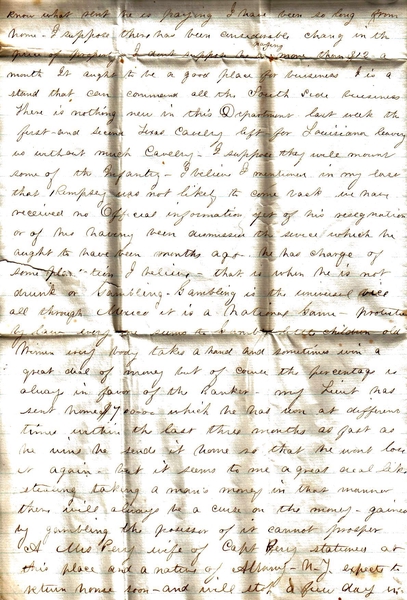 know what rent he is paying I have been so long from
home - I suppose there has been considerable chang in the
paying
price of property I dont suppose he any more than $12 a
month It aught to be a good place for business I is a
stand that can command all the South Side business
There is nothing new in this Department last week the
first and second Texas Cavelry left for Louisiana leaving
us without much Cavelry - I suppose they will mount
some of the Infantry - I believe I mentioned in my last
that was not likely to come back we have
received no Official information yet of his resignation
or of his having been dismissed the service which he
aught to have been months ago - he has charge of
some I believe - that is when he is not
drunk or Gambling - Gambling is the
all through Mexico it is a National Game -
every one seems to children old
Women every body takes a hand and sometimes win a
great deal of money but of course the percentage is
always in favor of the Banker - my Lieut has
sent home which he has won at different
times within the last three months as fast as
he wins he sends it home so that he wont lose
it again - but it seems to me a great deal like
stealing taking a man's money in that manner
there will always be a curse on the money - gained
by gambling the possessor of it cannot prosper
A Mrs wife of Capt stationed at
this place and a native of Albany - N - Y. expects to
return home soon - and will stop a few days in